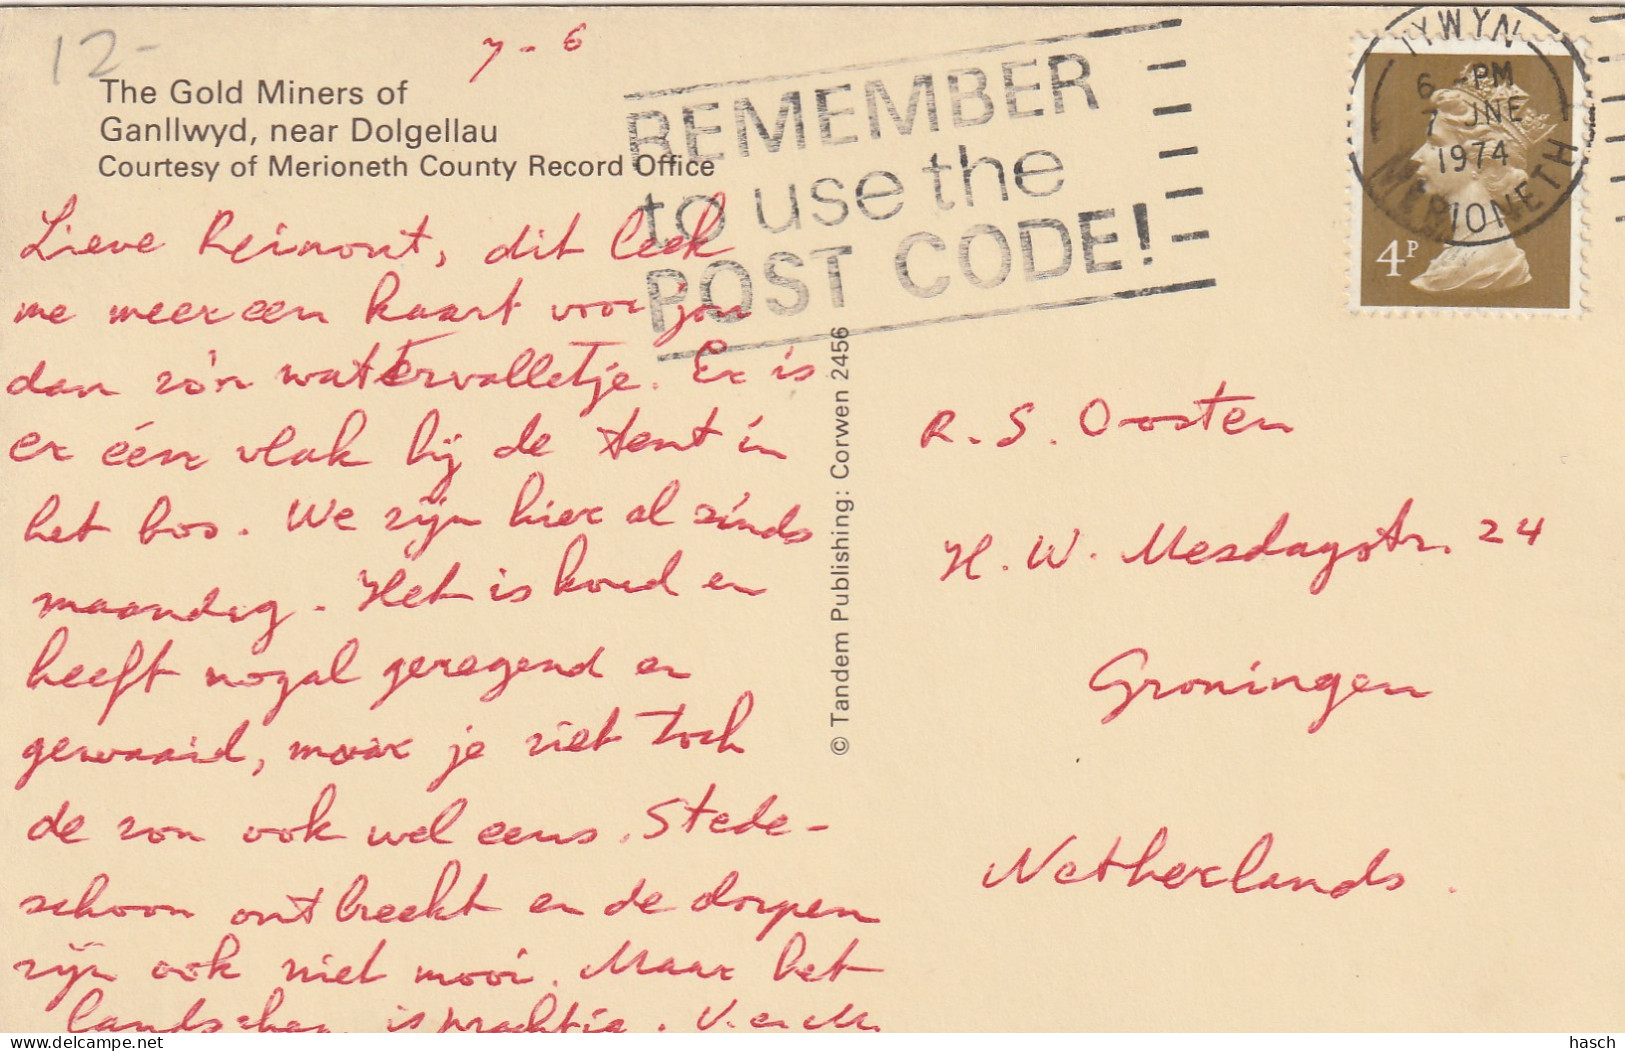 12-
7-6
The Gold Miners of
Ganllwyd, near Dolgellau
Courtesy of Merioneth County Record Office
REMEMBER
to use the
POST CODE!
TYWYN
6 -PM
7 JNE
1974
MERIONETH
4P
Lieve Reimont, dit leek
me meer een kaart voor jou
dan zo'n watervalletje. Er is
er één vlak bij de tent in
het bos. We zijn hier al sinds
maandag. Het is koud en
heeft nogal geregend en
gewaaid, maar je ziet toch
de zon ook wel eens. Stede-
schoon ontbreekt en de dorpen
zijn ook niet mooi. Maar het
landschap is prachtig. V. en M.
© Tandem Publishing: Corwen 2456
R. S. Oosten
H. W. Mesdagstr. 24
Groningen
Netherlands.
hasch